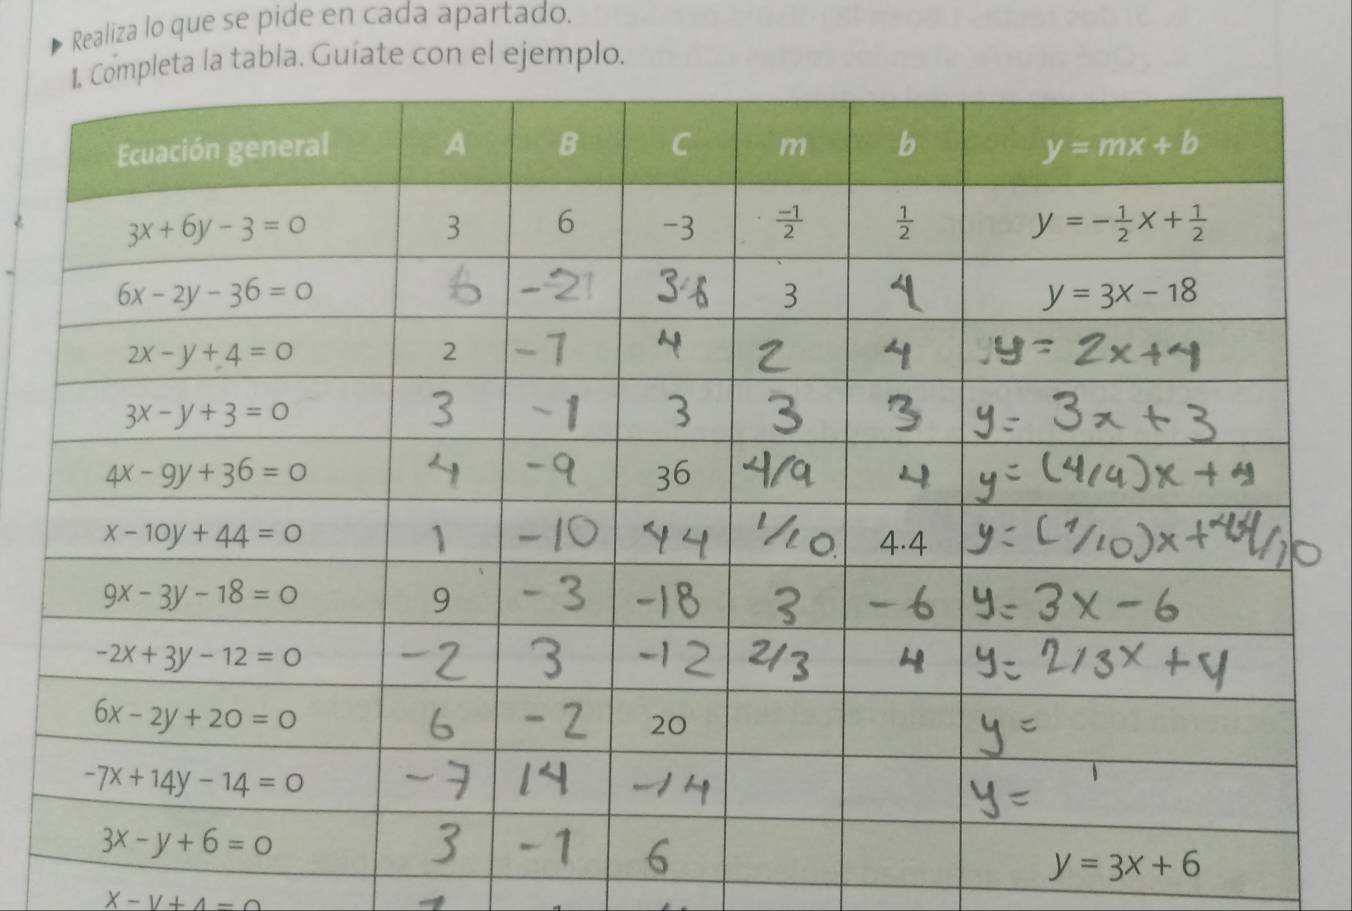 Realiza lo que se pide en cada apartado.
1. Completa la tabla. Guíate con el ejemplo.
Ecuación general A B C m b y = mx + b
3x + 6y - 3 = 0 3 6 -3 -1/2 1/2 y = -1/2 x + 1/2
6x - 2y - 36 = 0 6 -2 36 3 4 y = 3x - 18
2x - y + 4 = 0 2 -1 4 2 4 y = 2x + 4
3x - y + 3 = 0 3 -1 3 3 3 y = 3x + 3
4x - 9y + 36 = 0 4 -9 36 4/9 4 y = (4/9)x + 4
x - 10y + 44 = 0 1 -10 44 1/10 4.4 y = (1/10)x + 44/10
9x - 3y - 18 = 0 9 -3 -18 3 -6 y = 3x - 6
-2x + 3y - 12 = 0 -2 3 -12 2/3 4 y = 2/3x + 4
6x - 2y + 20 = 0 6 -2 20 y =
-7x + 14y - 14 = 0 -7 14 -14 y =
3x - y + 6 = 0 3 -1 6 y = 3x + 6